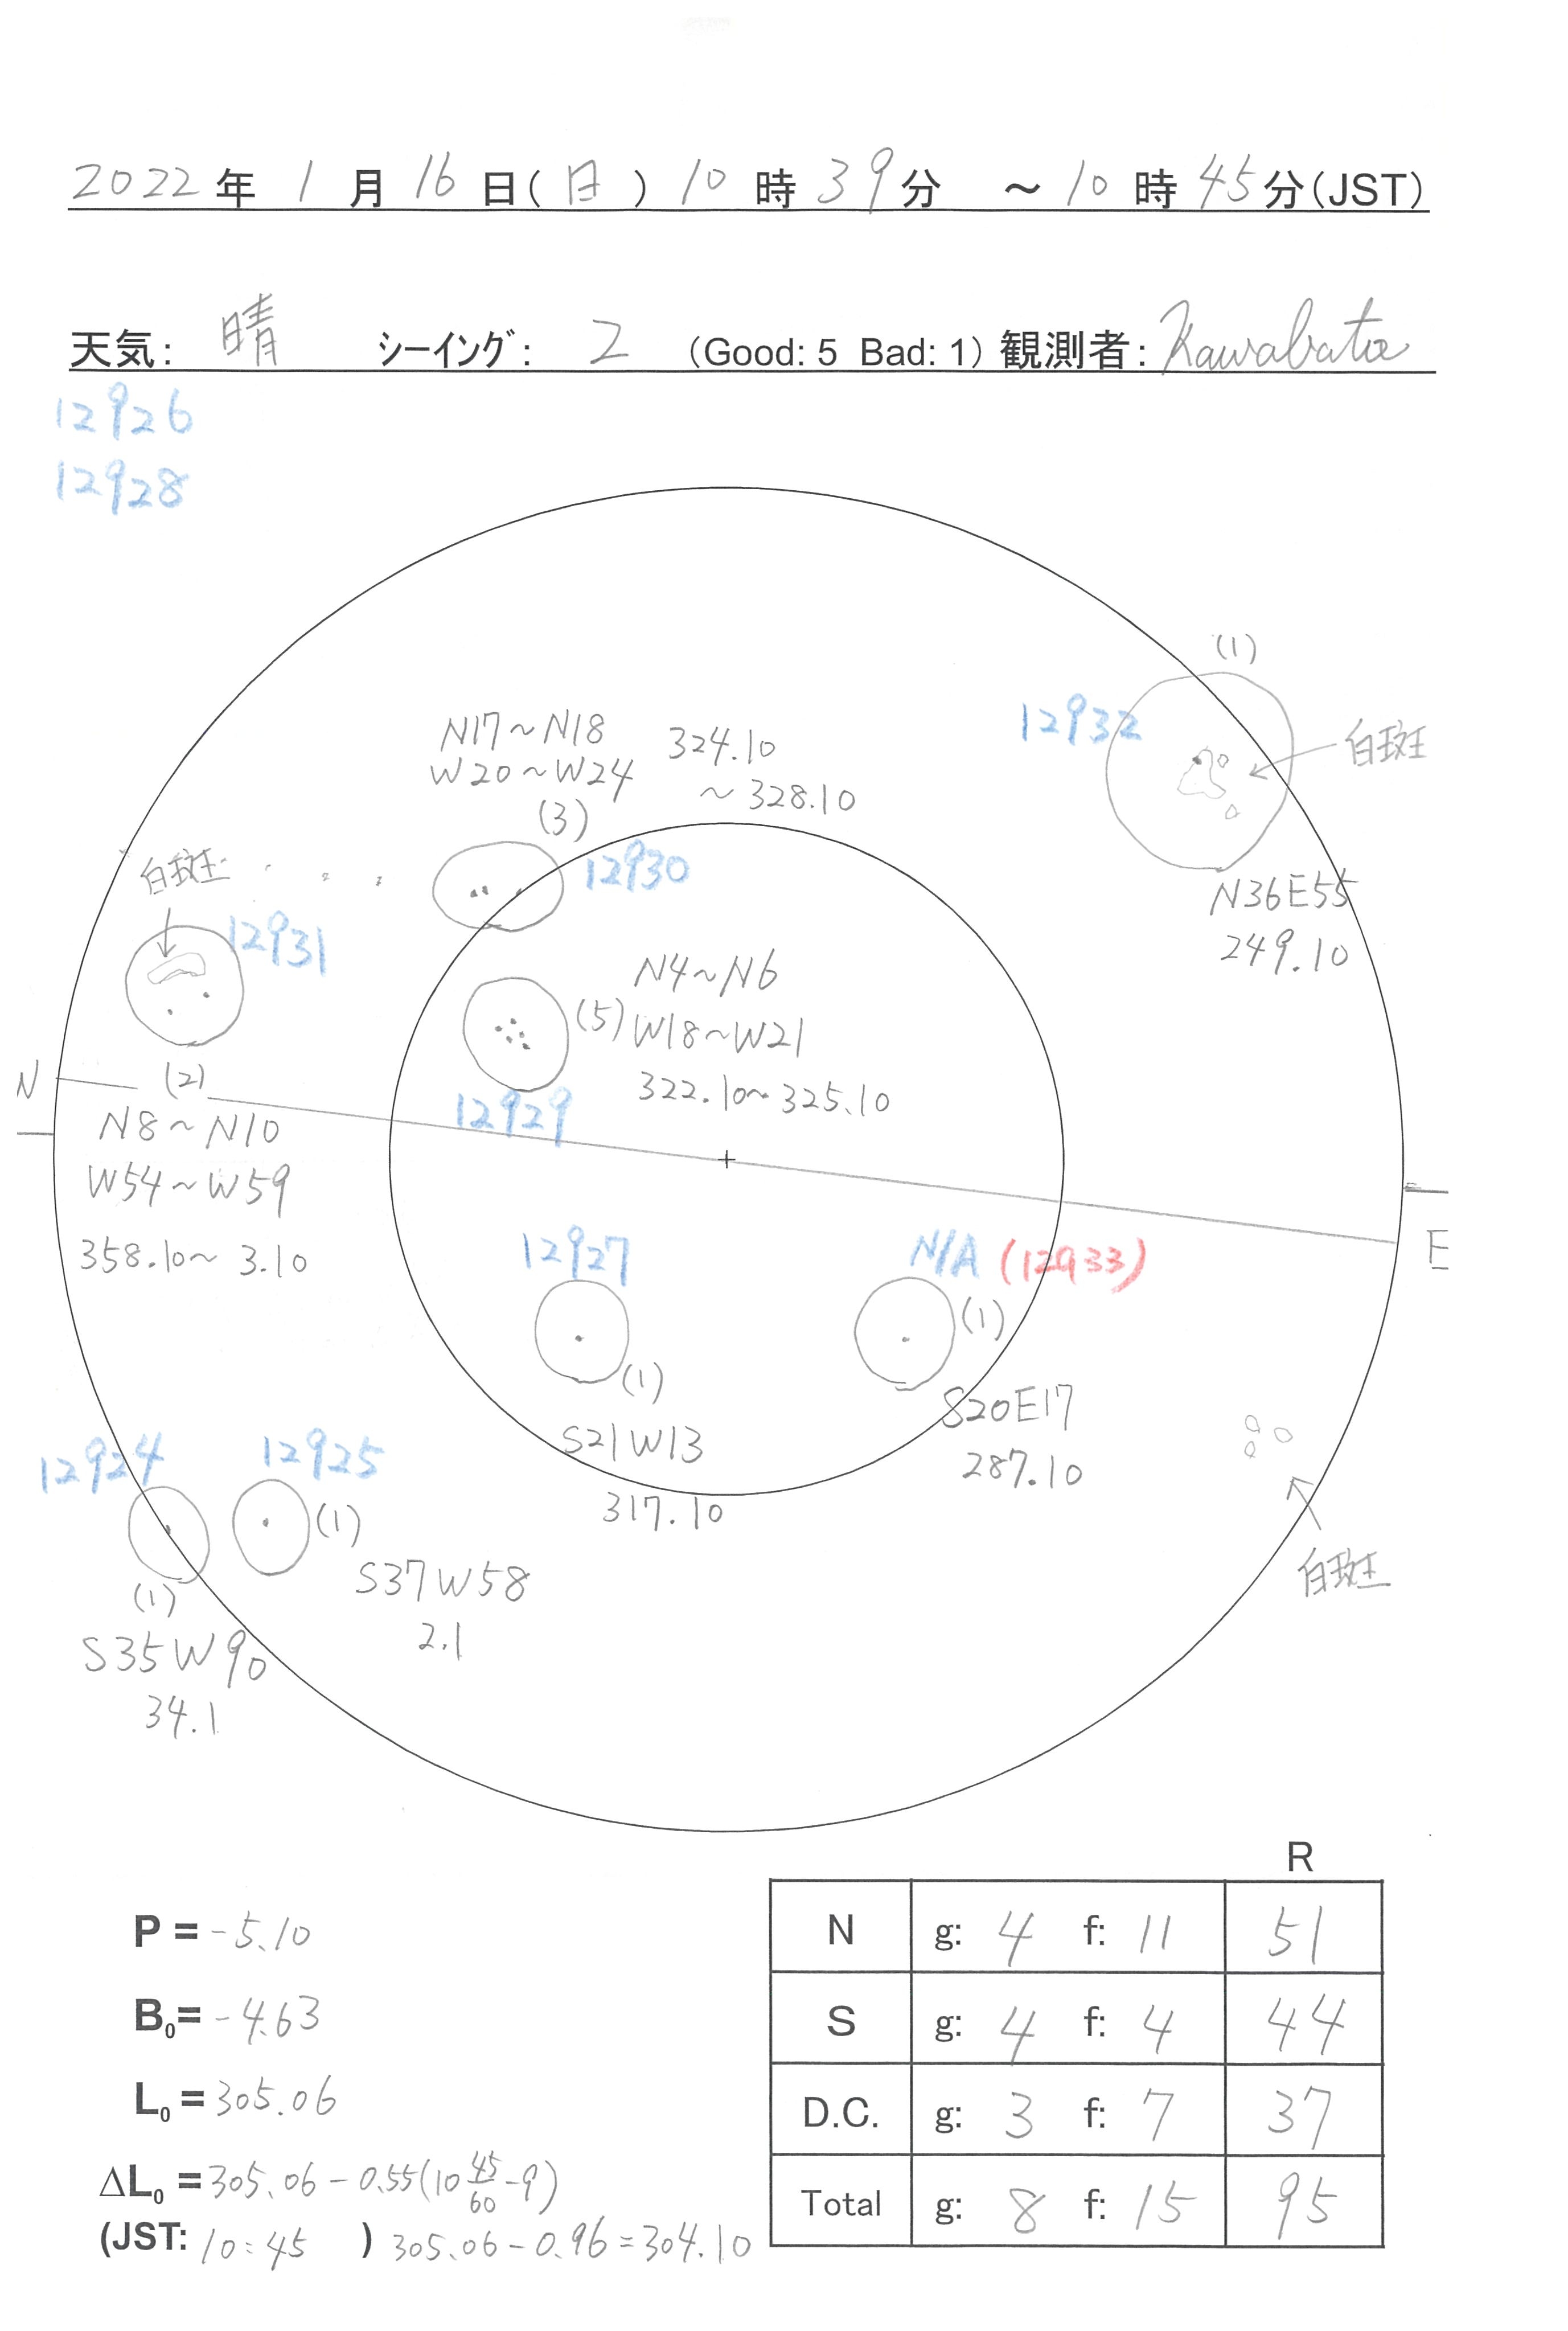 2022年 1月 16日(日) 10時39分 ～10時45分(JST)
天気: 晴 シーイング: 2 (Good: 5 Bad: 1) 観測者: Kawabata
12926
12928
(1)
12932
白斑
N36E55
249.10
N17～N18
W20～W24
324.10
～328.10
(3)
12930
白斑
12931
(2)
N8～N10
W54～W59
358.10～ 3.10
N4～N6
(5)
W18～W21
322.10～325.10
12929
N
E
12927
(1)
S21W13
317.10
N/A (12933)
(1)
S20E17
287.10
白斑
12924
(1)
S35W90
34.1
12925
(1)
S37W58
2.1
P = -5.10
B₀= -4.63
L₀ = 305.06
ΔL₀ = 305.06 - 0.55(10 45/60 - 9)
(JST: 10:45 ) 305.06 - 0.96 = 304.10
R
N g: 4 f: 11 51
S g: 4 f: 4 44
D.C. g: 3 f: 7 37
Total g: 8 f: 15 95